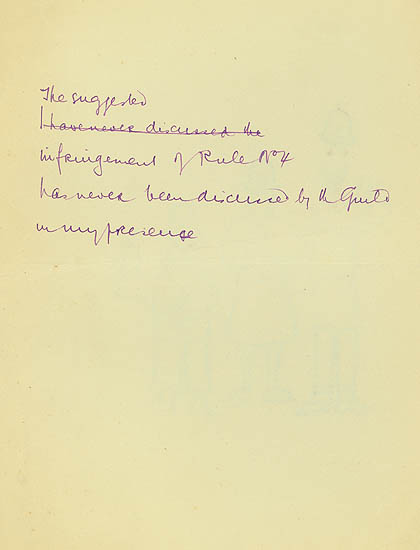 The suggested
I have never discussed the
infringement of Rule No 4
has never been discussed by the Guild
in my presence